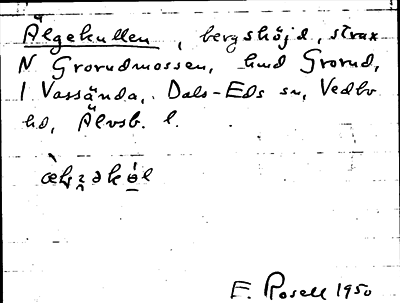 Älgekullen, bergshöjd, strax
N Grorudmossen, hmd Grorud,
I Vassända, Dals-Eds sn, Vedbo
hd, Älvsb. l.
E. Rosell 1950